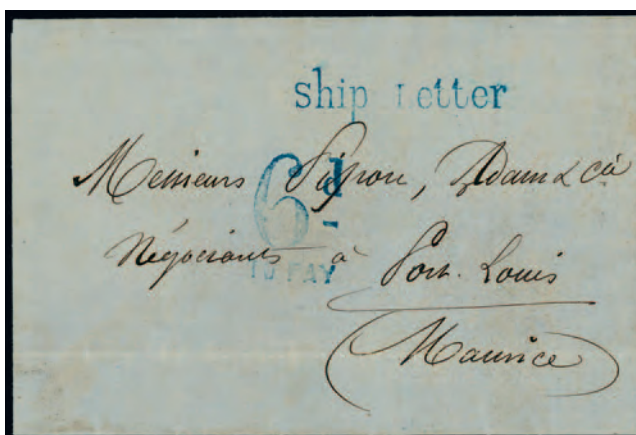 Ship Letter
Messieurs Pipon, Adam & Cie
6d
Négociants à Port. Louis
TO PAY
Maurice